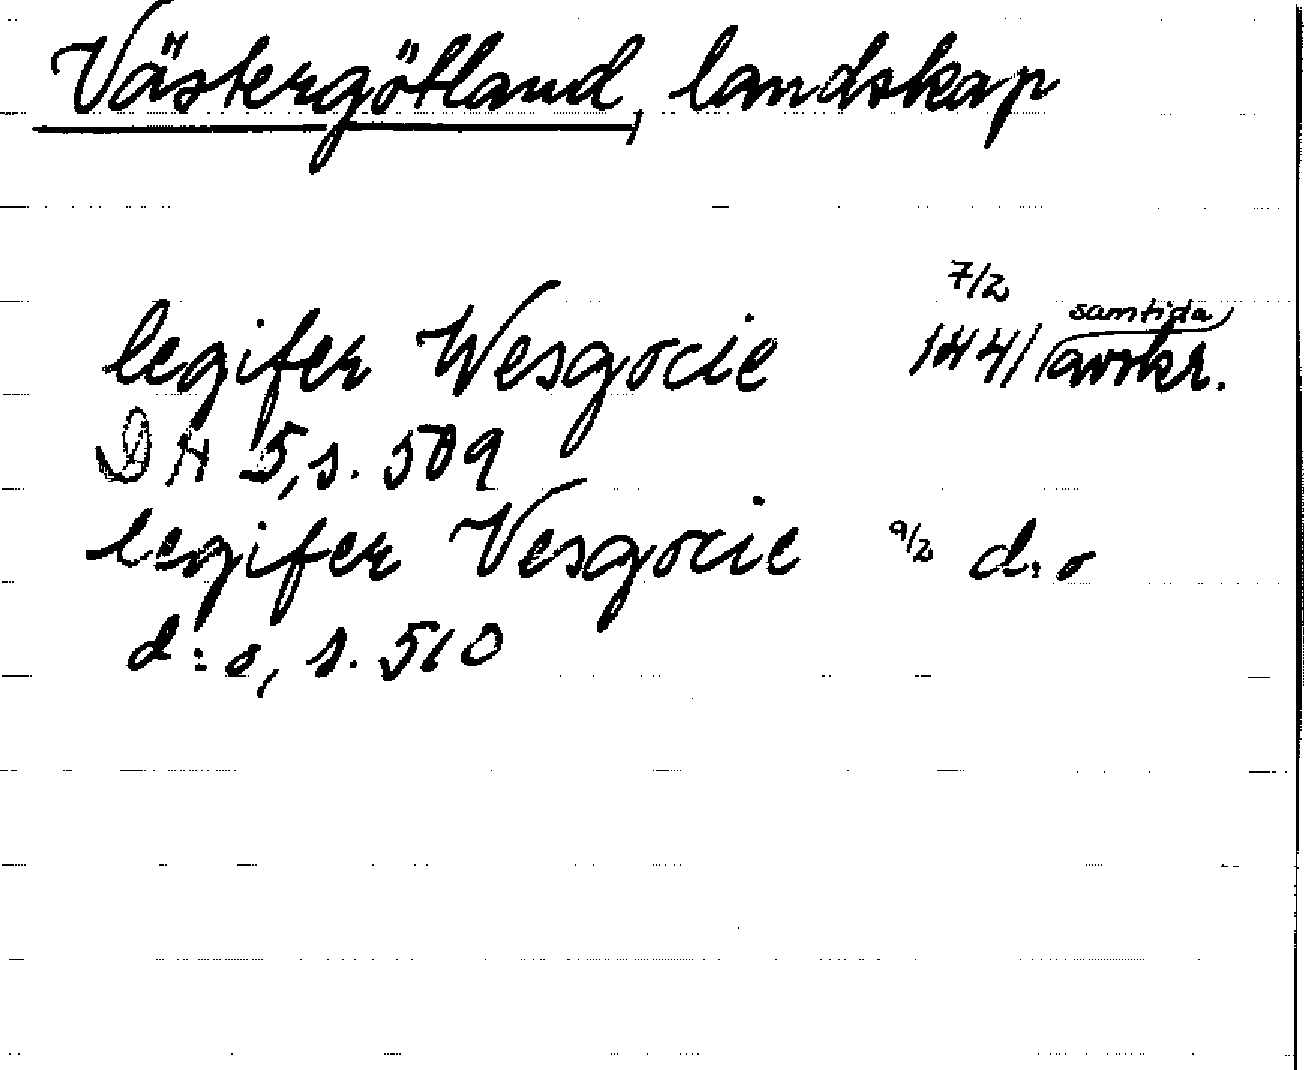 Västergötland, landskap
7/2
legifer Wesgocie 1441 samtida avskr.
DN 5, s. 509
legifer Vesgocie 9/2 d:o
d:o, s. 510